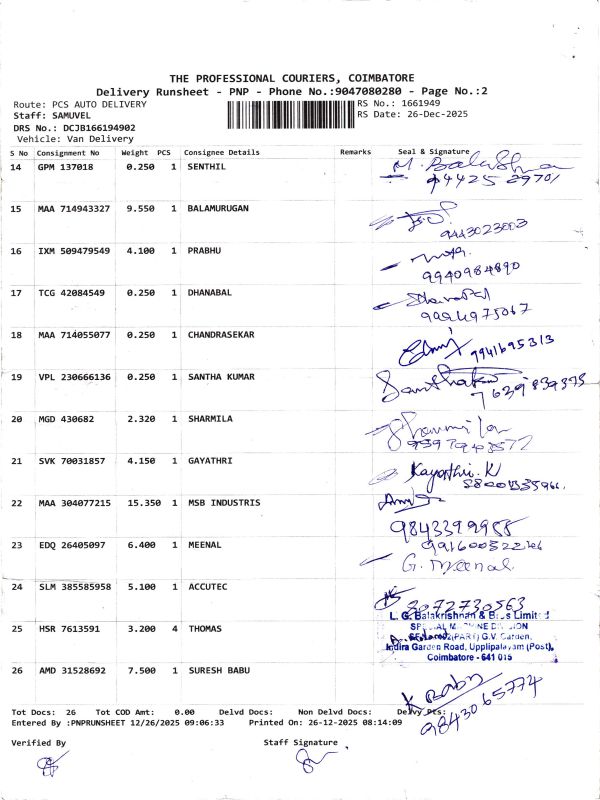 THE PROFESSIONAL COURIERS, COIMBATORE
Delivery Runsheet - PNP - Phone No.:9047080280 - Page No.:2
Route: PCS AUTO DELIVERY RS No.: 1661949
Staff: SAMUVEL RS Date: 26-Dec-2025
DRS No.: DCJB166194902
Vehicle: Van Delivery
S No Consignment No Weight PCS Consignee Details Remarks Seal & Signature
14 GPM 137018 0.250 1 SENTHIL
15 MAA 714943327 9.550 1 BALAMURUGAN
9443023003
16 IXM 509479549 4.100 1 PRABHU
9940984890
17 TCG 42084549 0.250 1 DHANABAL
18 MAA 714055077 0.250 1 CHANDRASEKAR
9941695313
19 VPL 230666136 0.250 1 SANTHA KUMAR
7639839375
20 MGD 430682 2.320 1 SHARMILA
21 SVK 70031857 4.150 1 GAYATHRI
Kayathri.K
22 MAA 304077215 15.350 1 MSB INDUSTRIS
23 EDQ 26405097 6.400 1 MEENAL
G. Meenal
24 SLM 385585958 5.100 1 ACCUTEC
3072730563
L. G. Balakrishnan & Bros Limited
25 HSR 7613591 3.200 4 THOMAS
G.V. Garden,
Indira Garden Road, Upplipalayam (Post),
Coimbatore - 641 015
26 AMD 31528692 7.500 1 SURESH BABU
K Babu
9843065774
Tot Docs: 26 Tot COD Amt: 0.00 Delvd Docs: Non Delvd Docs: Delvy Pts:
Entered By :PNPRUNSHEET 12/26/2025 09:06:33 Printed On: 26-12-2025 08:14:09
Verified By Staff Signature